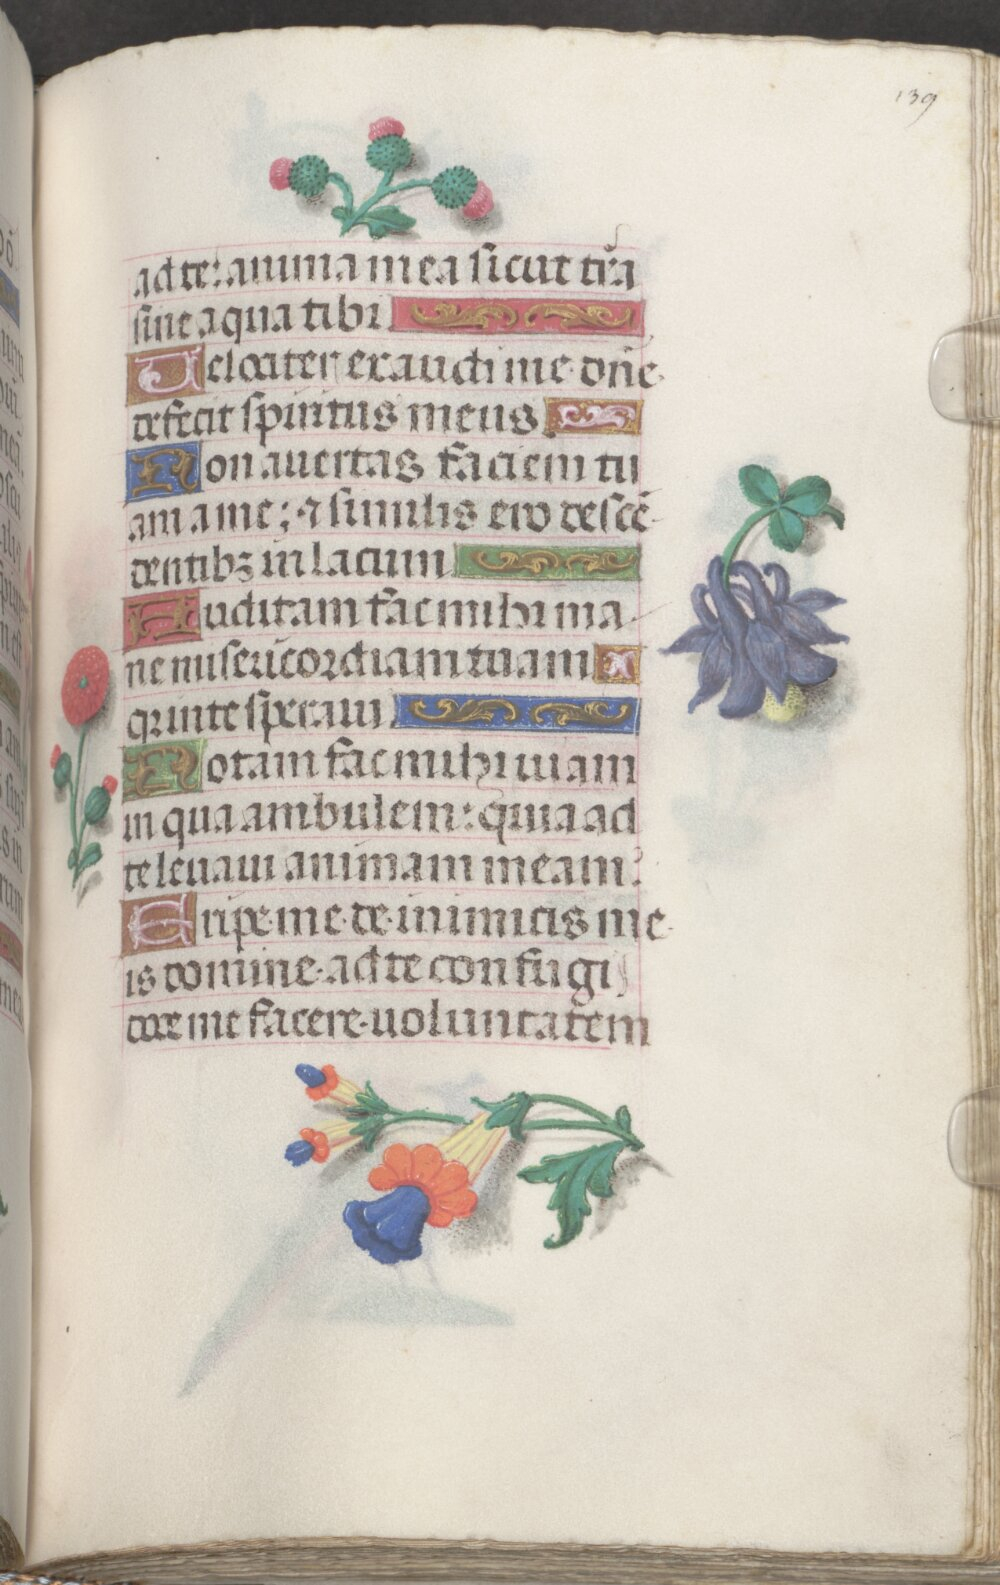 139
ad te: anima mea sicut tr̄a
sine aqua tibi
Velociter exaudi me dn̄e
defecit spiritus meus
Non auertas faciem tu
am a me; ⁊ similis ero descē
dentibꝫ in lacum
Auditam fac mihi ma
ne misericordiam tuam
qr in te speraui
Notam fac mihi uiam
in qua ambulem: quia ad
te leuaui animam meam
Eripe me de inimicis me
is domine ad te confugi
doce me facere uoluntatem